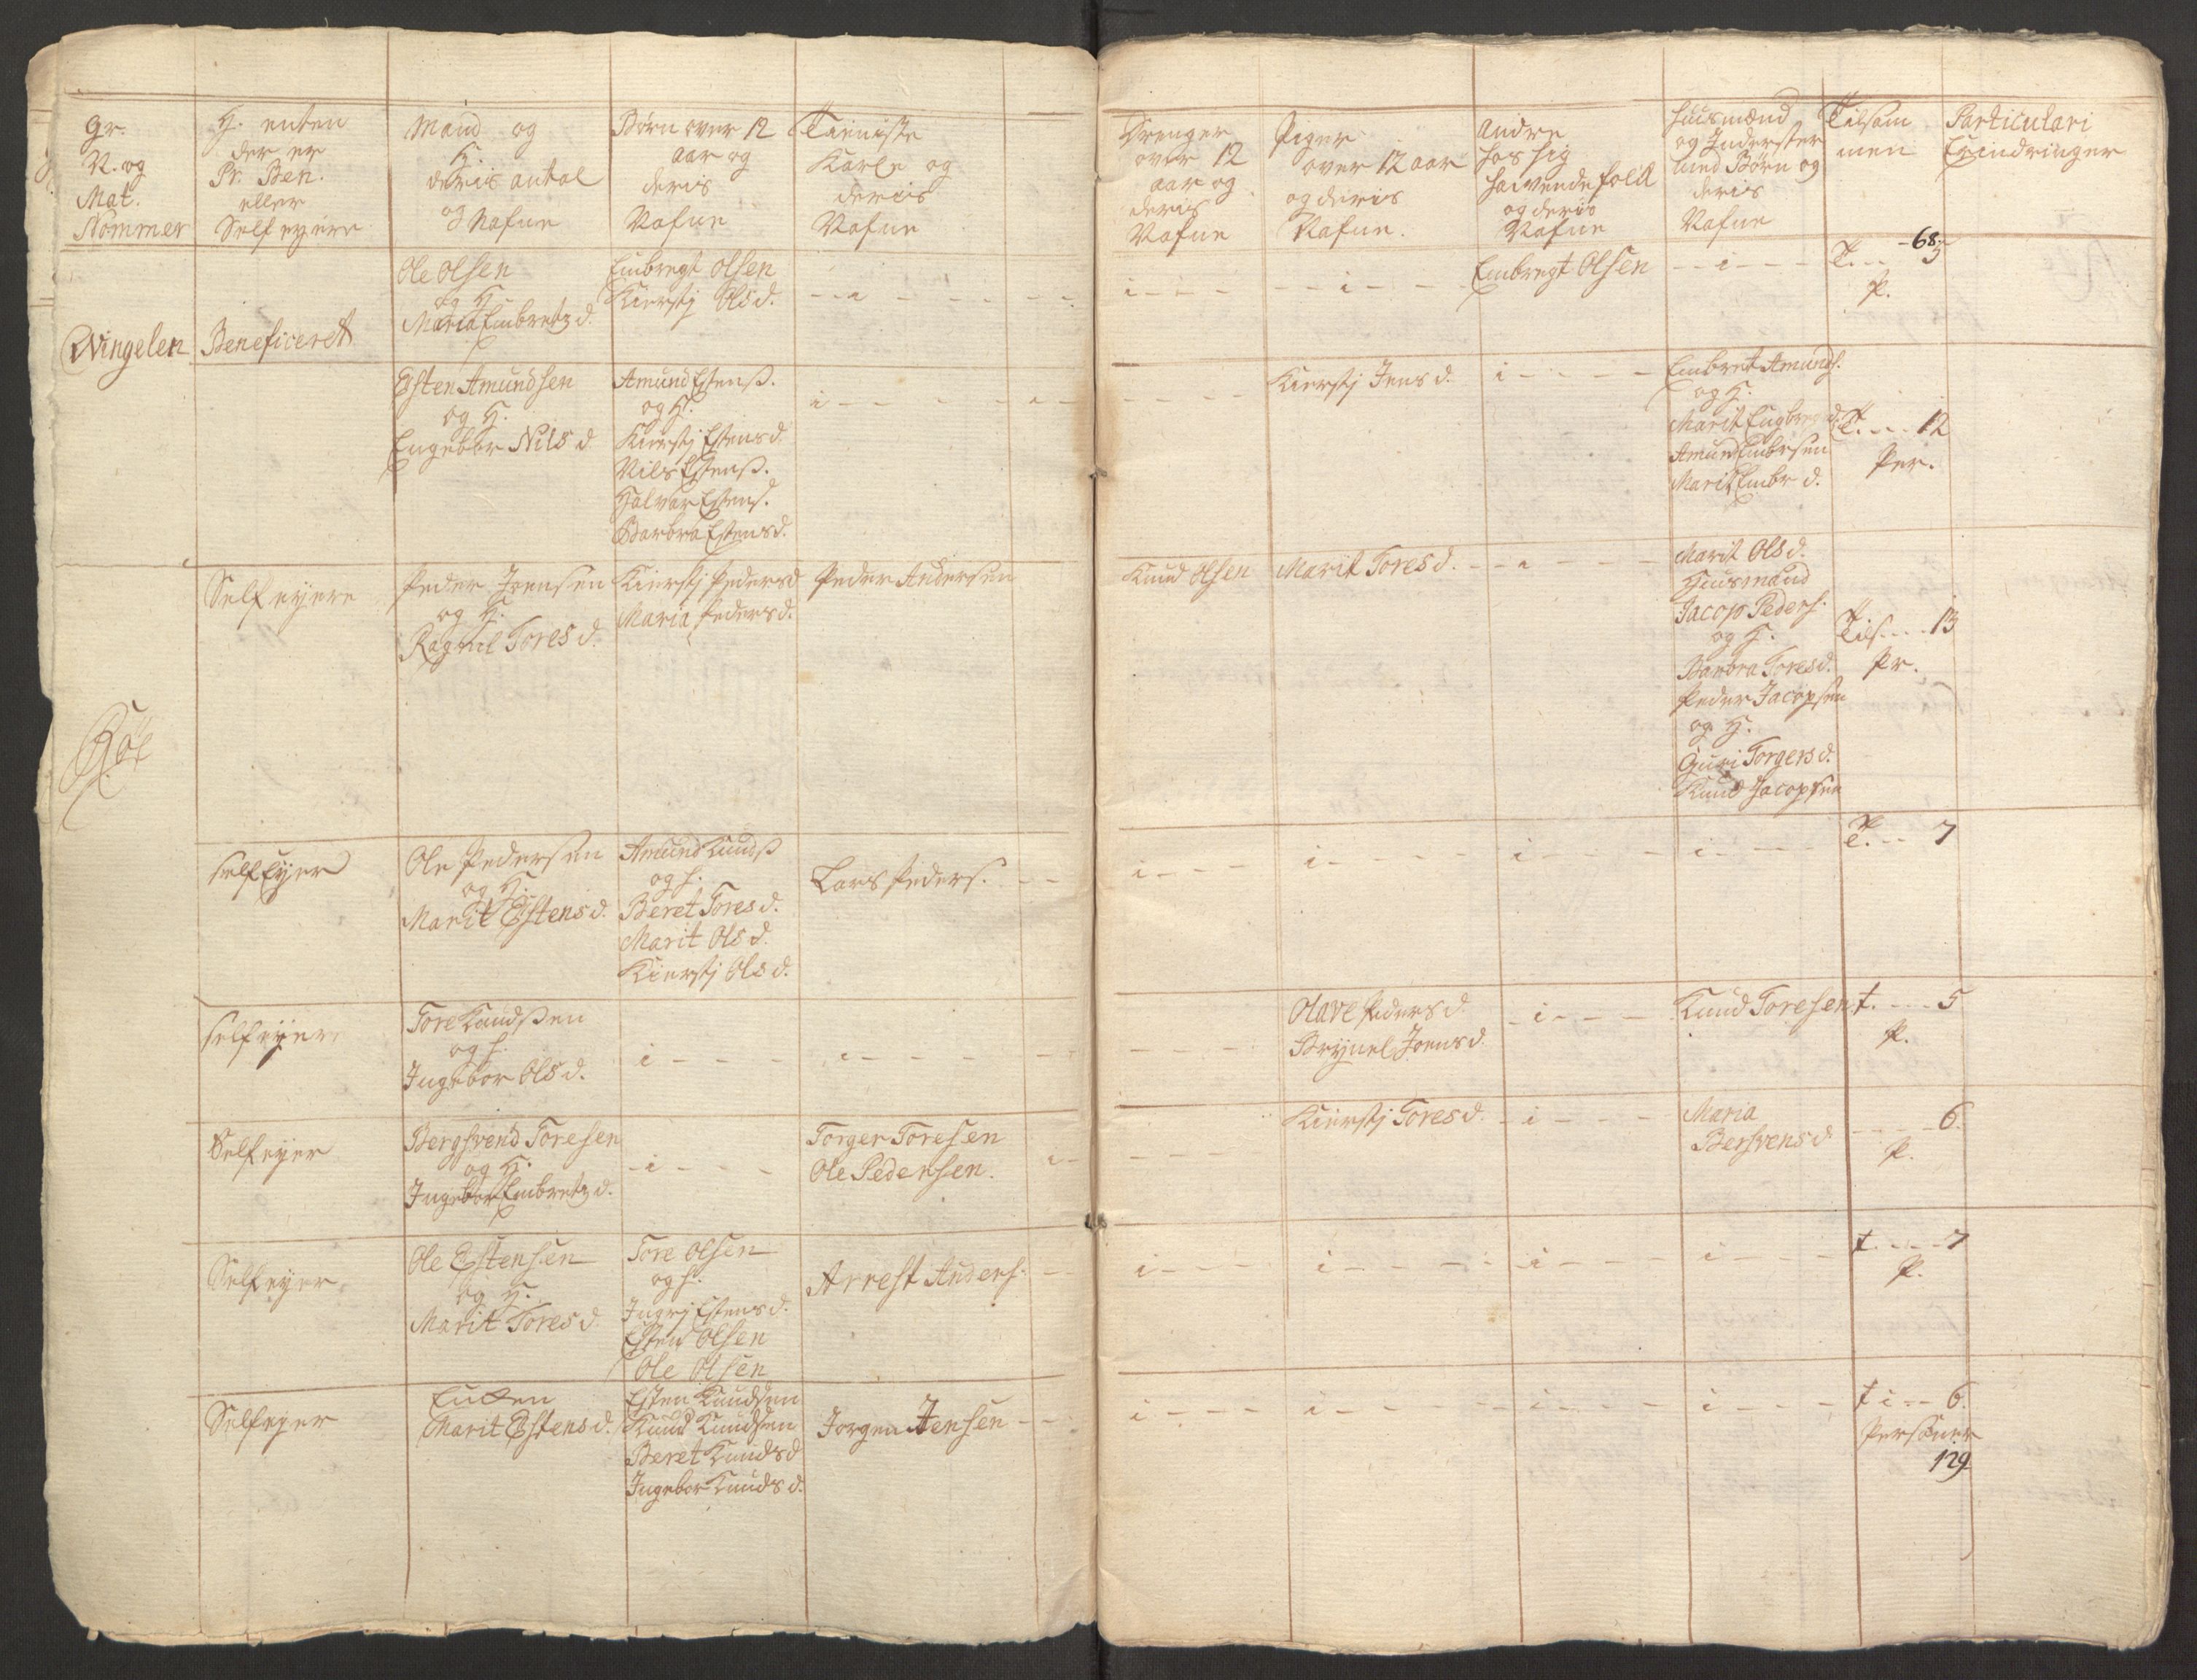 gr.
N. og
Mat.
Nommer
H. enten
der er
Pr. Ben.
eller
Self eyere
Mand og
H.
deris antal
og Nafne
Børn over 12
aar og
deris
Nafne
Tieniste
Karle og
deris
Nafne
Drenger
over 12
aar og
deris
Nafne
Piger
over 12 aar
og deris
Nafne.
Andre
hos sig
havende folk
og deris
Nafne
Huusmænd
og Inderster
med Børn og
deris
Nafne
Tilsam
men
Particulari
Erindringer
Wingelen
Beneficeret
Ole Olsen
og H.
Maria Embretz d.
Embregt Olsen
Kierstj Ols d.
- - i - - - -
i - - -
- - i - - -
Embregt Olsen
- - i - - -
- 68
T. - - 5
P.
Esten Amundsen
og H.
Engebor Nils d
Amund Estenß.
og H.
Kierstj Estens d
Nils Estenß.
Halvar Estens.
Barbra Estens d.
i - - - -
Kierstj Jens d.
i - - - -
Embret Amunds.
og H.
Marit Engbr d.
Amund Embrsen
Marit Embr d.
T. - - - 12
Per.
Røe
Self eyere
Peder Joensen
og H.
Ragnil Tores d.
Kierstj Peders d
Maria Peders d.
Peder Andersen
Knud Olsen
Marit Tores d.
- - i - - -
Marit Ols d.
Huusmand
Jacop Peders.
og H.
Barbra Tores d.
Peder Jacopsen
og H.
Guri Torgers d.
Knud Jacopsen
Tils - - - 13
Pr.
self Eyer
Ole Pedersen
og H.
Marit Estens d.
Amund Knudß
og h.
Beret Tores d.
Marit Ols d.
Kierstj Ols d.
Lars Peders. - -
i - - -
i - - - -
i - - - -
i - - - -
T. - - 7
self eyer
Tore Knudßen
og h.
Ingebor Ols d.
i - - - -
i - - - -
- - - -
Olave Peders d.
Brynel Joens d.
- i - - -
Knud Toresen
t. - - - 5
P.
Self eyer
Bergsvend Toresen
og H.
Ingebor Embretz d.
- i - - - -
Torger Toresen
Ole Pedersen.
i -
- - - - -
Kierstj Tores d.
- i - - - -
Maria
Bersvens d
- - - - 6.
P.
Self eyer
Ole Estensen
og H.
Marit Tores d.
Tore Olsen
og h.
Ingrj Estens d.
Esten Olsen
Ole Olsen
Arrest Anders. -
i - - -
i - - - -
- i - - -
i - - - -
t. - - - 7
P.
Self eyer
Encken
Marit Estens d.
Esten Knudsen
Knud Knudsen
Beret Knuds d
Ingebor Knuds d.
Jorgen Jensen - -
i - - -
i - - - - -
i - - - -
i - - - -
t i - - 6.
Personer
129